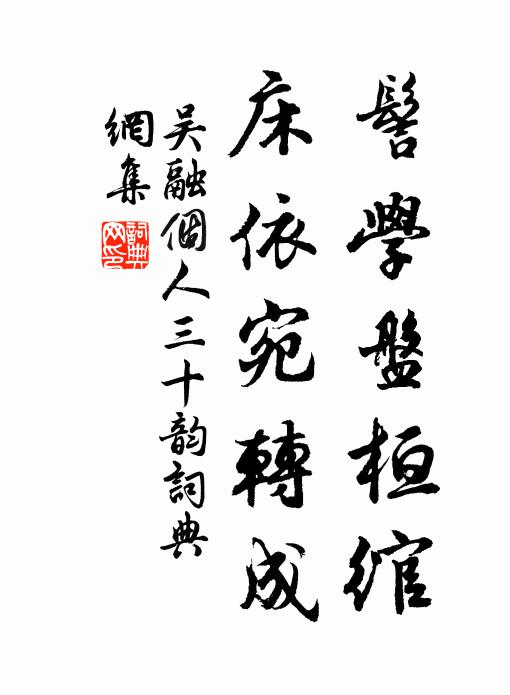 髻學盤桓綰
床依宛轉成
吳融個人三十韵詞典
網集
詞典
网印